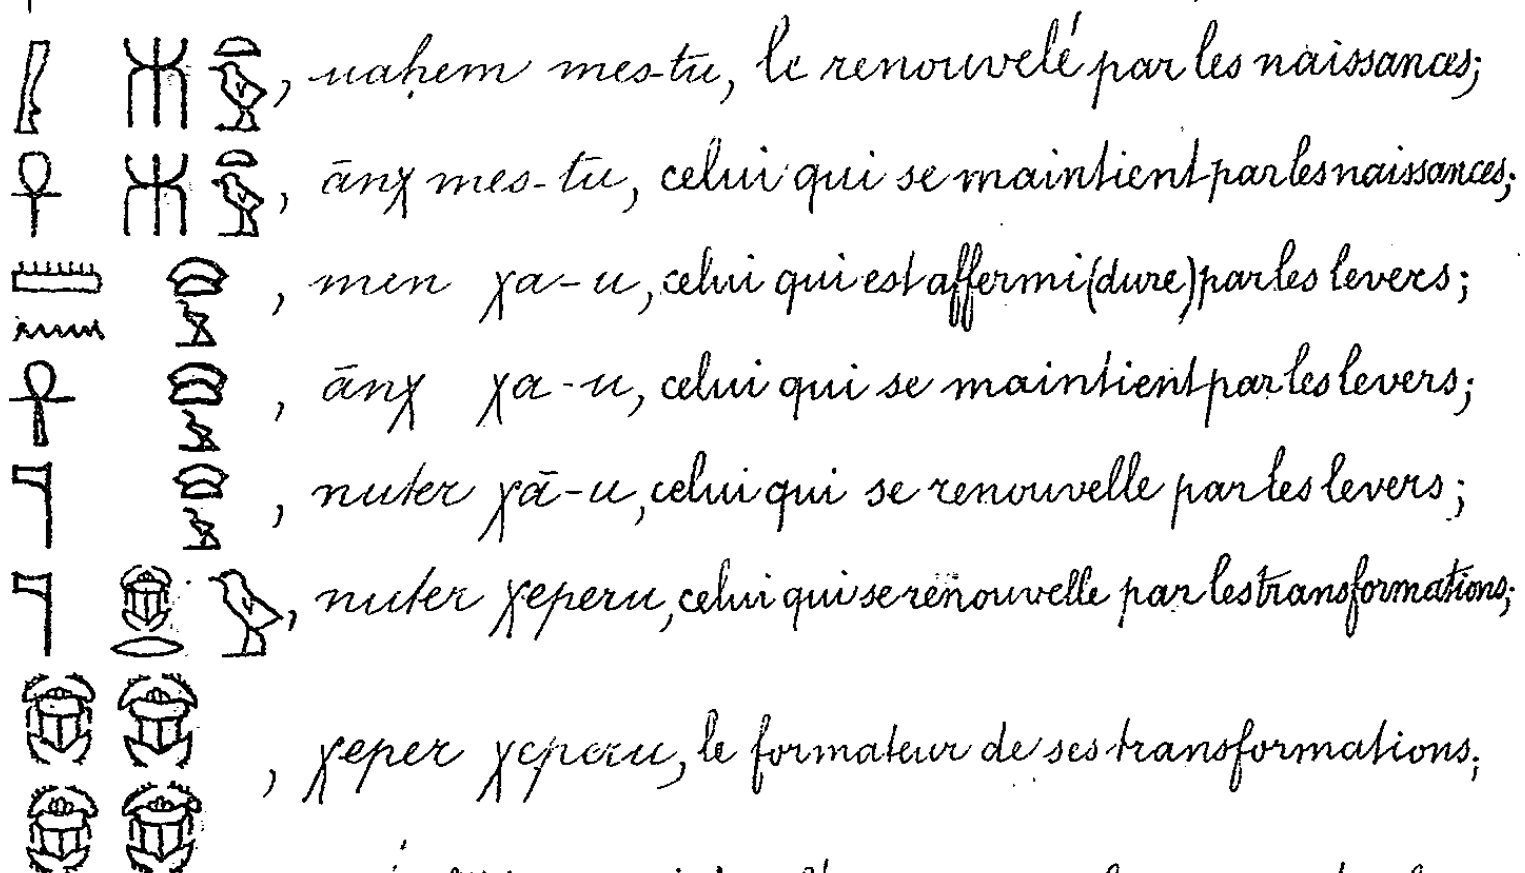 𓄙 𓄟 𓏏𓅱, uaḥem mes-tū, le renouvelé par les naissances;
𓋹 𓄟 𓏏𓅱, ānχ mes-tū, celui qui se maintient par les naissances;
𓏠𓈖 𓈍𓅱, men χa-u, celui qui est affermi (dure) par les levers;
𓋹 𓈍𓅱, ānχ χa-u, celui qui se maintient par les levers;
𓊹 𓈍𓅱, nuter χā-u, celui qui se renouvelle par les levers;
𓊹 𓆣𓂋 𓅱, nuter χeperu, celui qui se renouvelle par les transformations;
𓆣𓆣𓆣𓆣, χeper χeperu, le formateur de ses transformations;